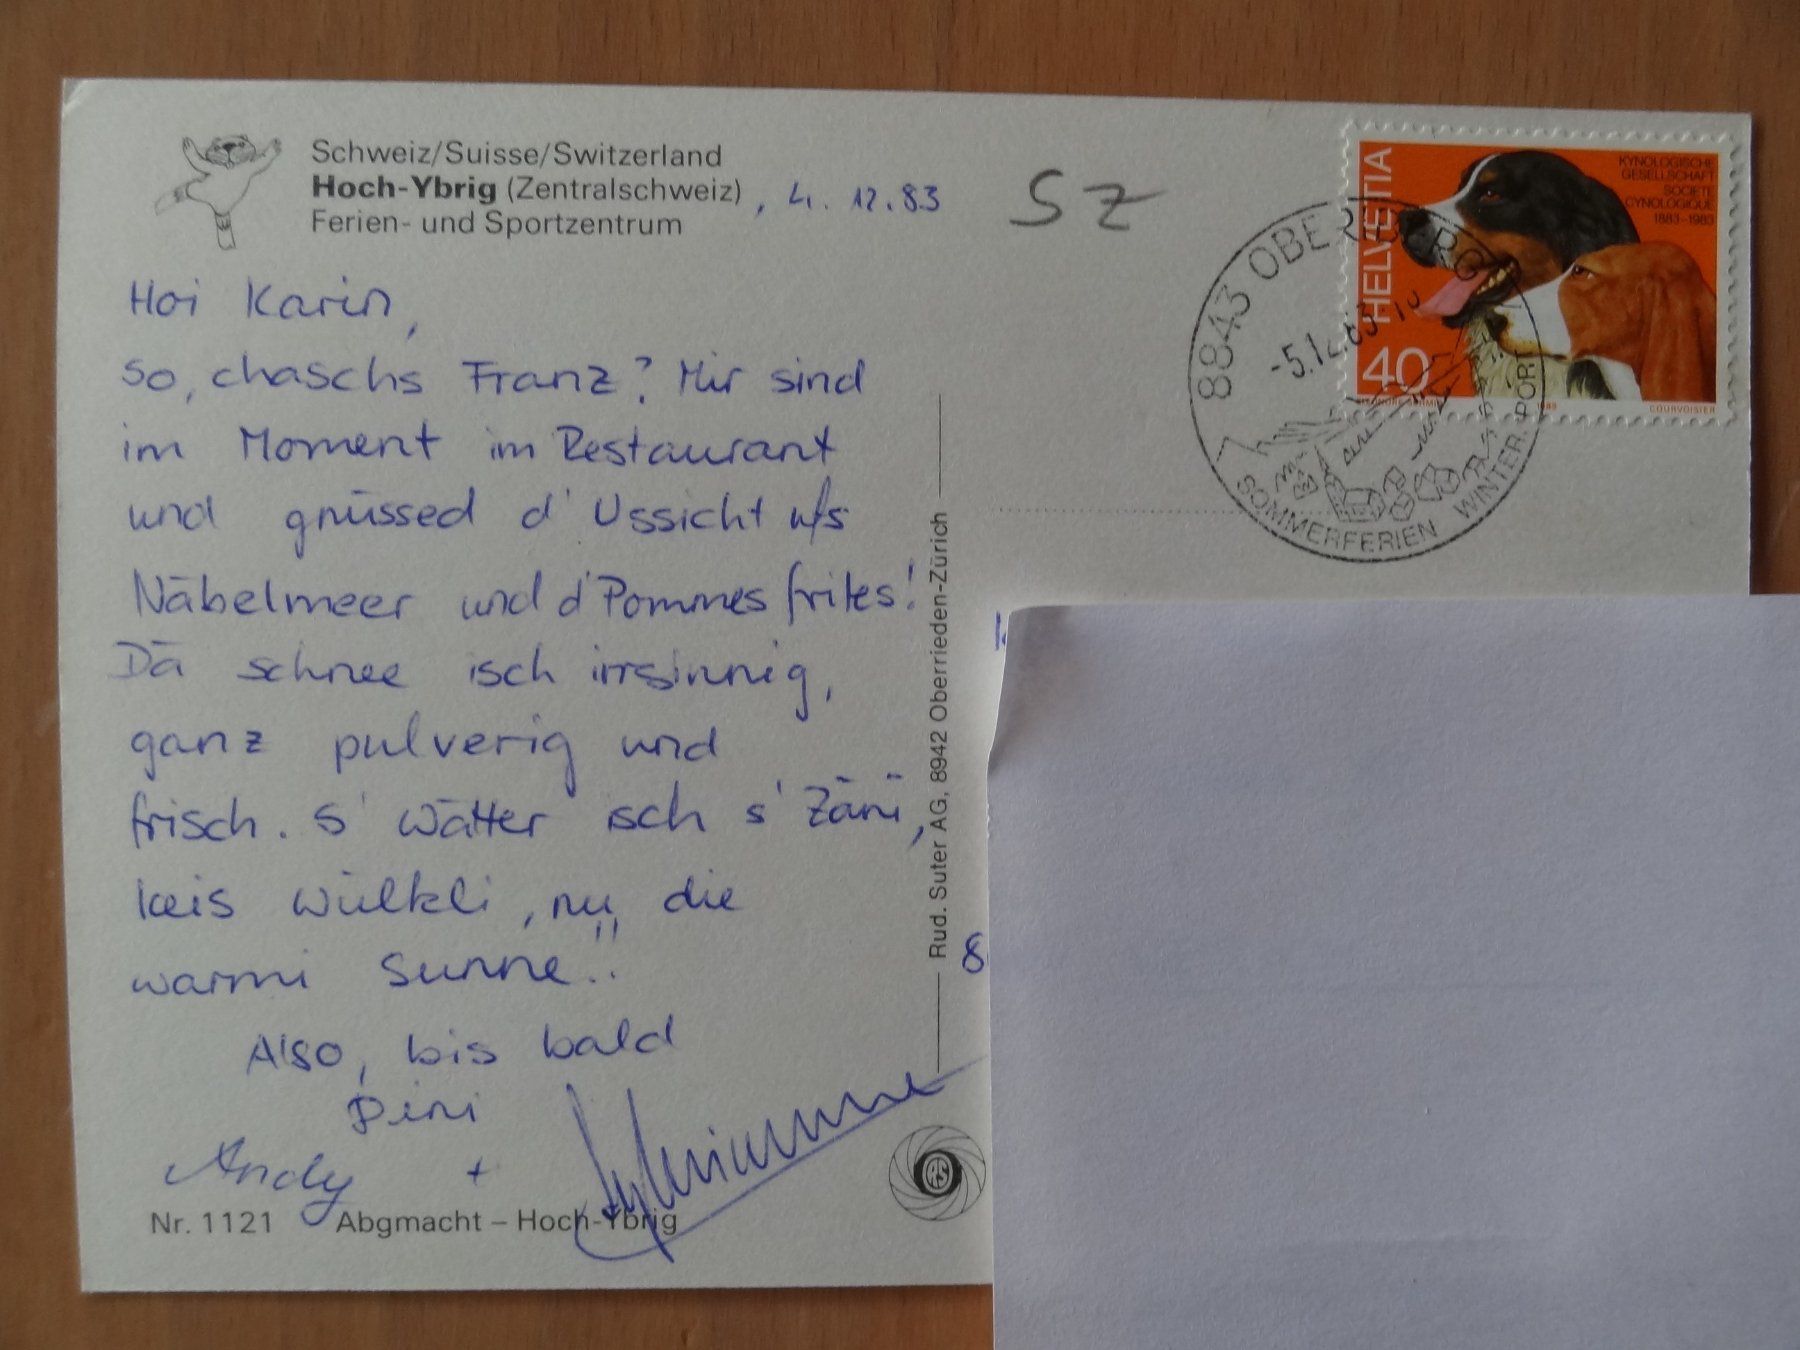 Schweiz/Suisse/Switzerland
Hoch-Ybrig (Zentralschweiz), 4. 12. 83
Ferien- und Sportzentrum
SZ
Hoi Karin,
so, chaschs Franz? Mir sind
im Moment im Restaurant
und gnüssed d'Ussicht ufs
Näbelmeer und d'Pommes frites!
Dä schnee isch irrsinnig,
ganz pulverig und
frisch. s'Wätter isch s'Zäni,
keis Wülkli, nu die
warmi Sunne!!
Also, bis bald
Andy +
Nr. 1121 Abgmacht – Hoch-Ybrig
Rud. Suter AG, 8942 Oberrieden-Zürich
RS
HELVETIA
KYNOLOGISCHE
GESELLSCHAFT
SOCIETE
CYNOLOGIQUE
1883-1983
40
1983
COURVOISIER
8843 OBERIBERG
-5.12.83
SOMMERFERIEN WINTERSPORT
8